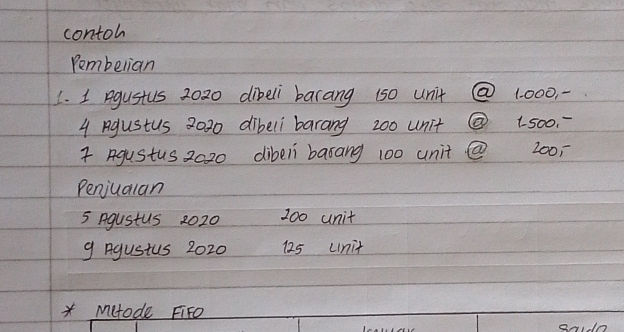 contoh
Pembelian
1. 1 Agustus 2020 dibeli barang 150 unit @ 1.000,-
4 Agustus 2020 dibeli barang 200 unit @ 1.500.-
7 Agustus 2020 dibeli barang 100 unit @ 200,-
Penjualan
5 Agustus 2020 200 unit
9 Agustus 2020 125 unit
* Metode FIFO
saldo